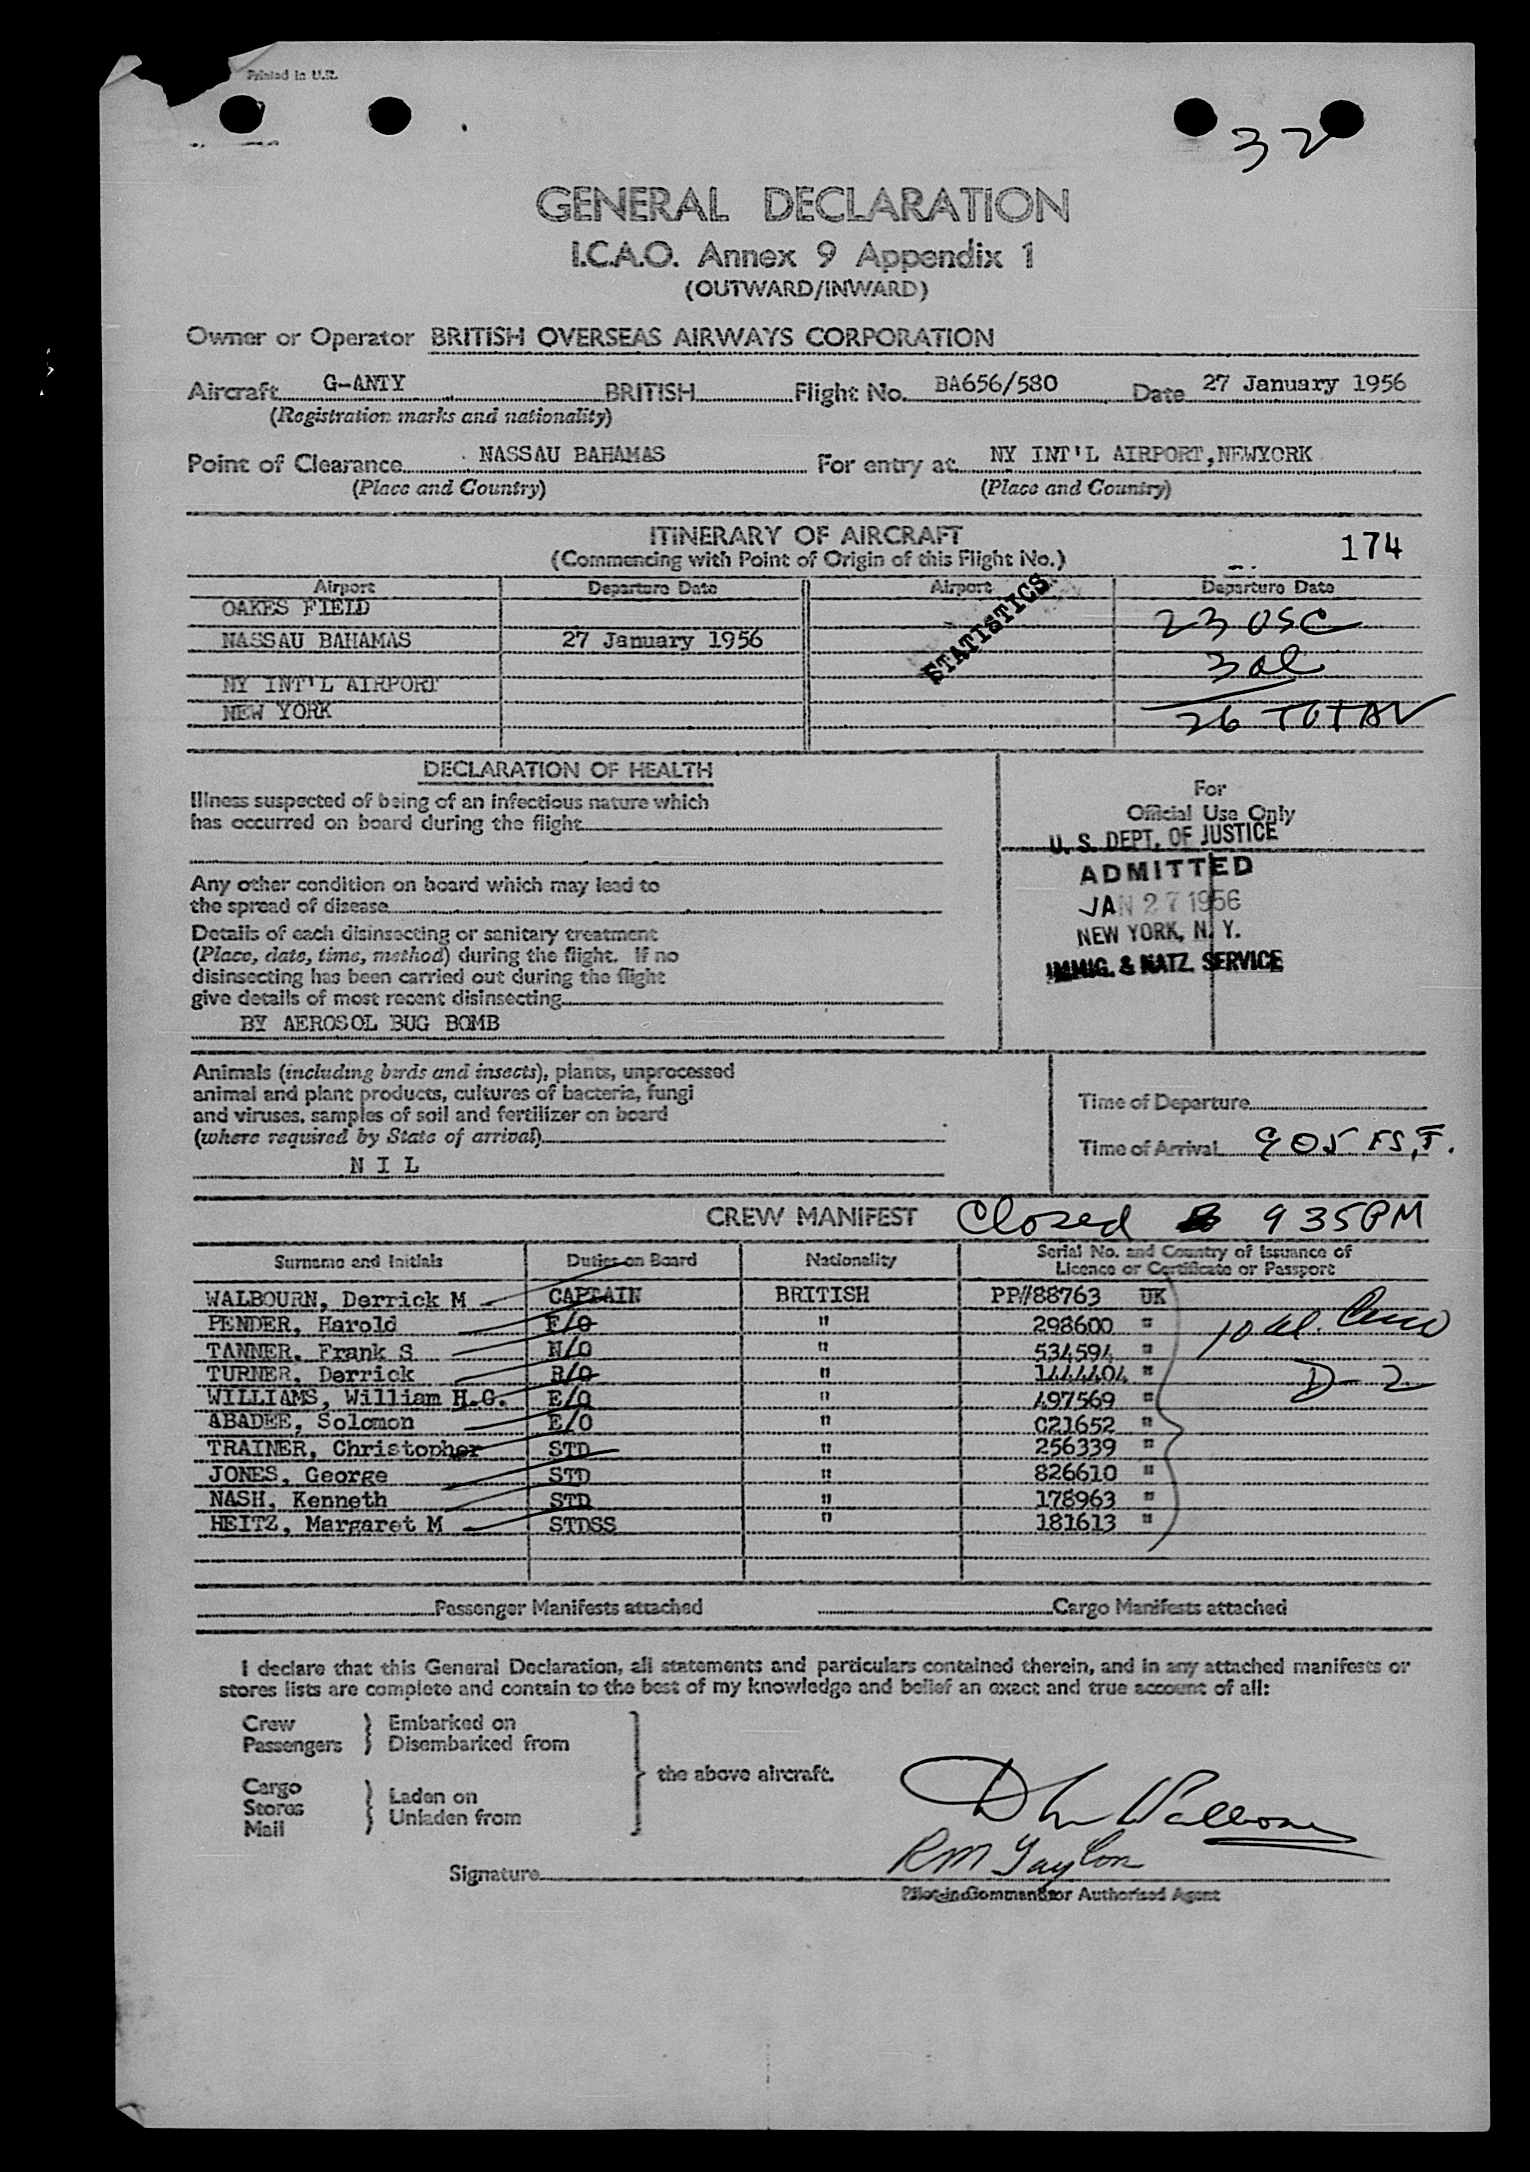 Printed in U.K.
32
GENERAL DECLARATION
I.C.A.O. Annex 9 Appendix 1
(OUTWARD/INWARD)
Owner or Operator BRITISH OVERSEAS AIRWAYS CORPORATION
Aircraft G-ANTY BRITISH Flight No. BA656/580 Date 27 January 1956
(Registration marks and nationality)
Point of Clearance NASSAU BAHAMAS For entry at NY INT'L AIRPORT,NEWYORK
(Place and Country) (Place and Country)
ITINERARY OF AIRCRAFT 174
(Commencing with Point of Origin of this Flight No.)
Airport Departure Date Airport Departure Date
OAKES FIELD 23 USC
NASSAU BAHAMAS 27 January 1956 STATISTICS
NY INT'L AIRPORT 3 al
NEW YORK 26 TOTAL
DECLARATION OF HEALTH
Illness suspected of being of an infectious nature which
has occurred on board during the flight
Any other condition on board which may lead to
the spread of disease
Details of each disinsecting or sanitary treatment
(Place, date, time, method) during the flight. If no
disinsecting has been carried out during the flight
give details of most recent disinsecting
BY AEROSOL BUG BOMB
For
Official Use Only
U. S. DEPT. OF JUSTICE
ADMITTED
JAN 27 1956
NEW YORK, N. Y.
IMMIG. & NATZ. SERVICE
Animals (including birds and insects), plants, unprocessed
animal and plant products, cultures of bacteria, fungi
and viruses, samples of soil and fertilizer on board
(where required by State of arrival)
N I L
Time of Departure
Time of Arrival 905 ES,T.
CREW MANIFEST Closed 9 35PM
Surname and Initials Duties on Board Nationality Serial No. and Country of Issuance of
Licence or Certificate or Passport
WALBOURN, Derrick M CAPTAIN BRITISH PP#88763 UK
PENDER, Harold F/O " 298600 " 10 al. Crew
TANNER, Frank S N/O " 534594 "
TURNER, Derrick R/O " 1444404 " D-2
WILLIAMS, William H.G. E/O " 497569 "
ABADEE, Solomon E/O " C21652 "
TRAINER, Christopher STD " 256339 "
JONES, George STD " 826610 "
NASH, Kenneth STD " 178963 "
HEITZ, Margaret M STDSS " 181613 "
Passenger Manifests attached Cargo Manifests attached
I declare that this General Declaration, all statements and particulars contained therein, and in any attached manifests or
stores lists are complete and contain to the best of my knowledge and belief an exact and true account of all:
Crew Embarked on
Passengers Disembarked from
the above aircraft.
Cargo
Stores Laden on
Mail Unladen from
R M Taylor
Signature
Pilot-in-Command or Authorised Agent